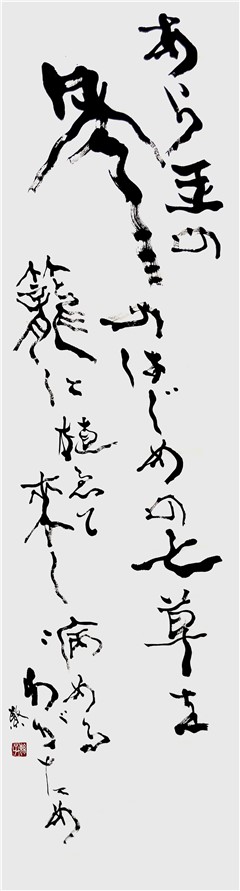 あら玉の
年
のはじめの七草を
籠に植ゑて来し
病める
わがため